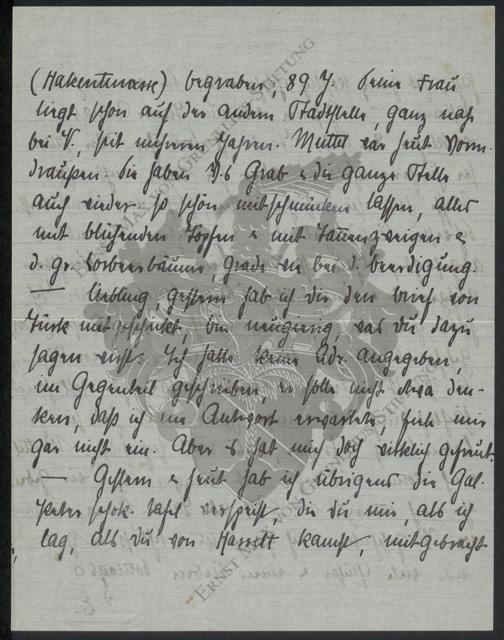 (Hakenterrasse) begraben, 89 J. Seine Frau
liegt schon auf der andern Stadtstelle, ganz nah
bei V., seit mehreren Jahren. Mutti war heut Vorm.
draußen. Sie haben V.s Grab & die ganze Stelle
auch wieder so schön mitschmücken lassen, alles
mit blühenden Töpfen & mit Tannenzweigen &
d. gr. Lorbeerbäume, grade wie bei d. Beerdigung.
— Liebling, gestern hab ich dir den Brief von
Türk mitgeschickt, bin neugierig, was du dazu
sagen wirst. Ich hatte keine Adr. angegeben,
im Gegenteil geschrieben, er solle nicht etwa den-
ken, daß ich eine Antwort erwartete, fiele mir
gar nicht ein. Aber es hat mich doch wirklich gefreut.
— Gestern & heut hab ich übrigens die Gal.
Peter schok. Tafel verspeist, die du mir, als ich
lag, als du von Hasselt kamst, mitgebracht
ERNST MAX VON GRUNELIUS-STIFTUNG
ERNST MAX VON GRUNELIUS-STIFTUNG